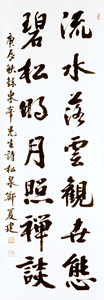 流水落雲觀世態
碧松明月照禪談
庚辰秋錄東峯先生詩松泉鄭夏建